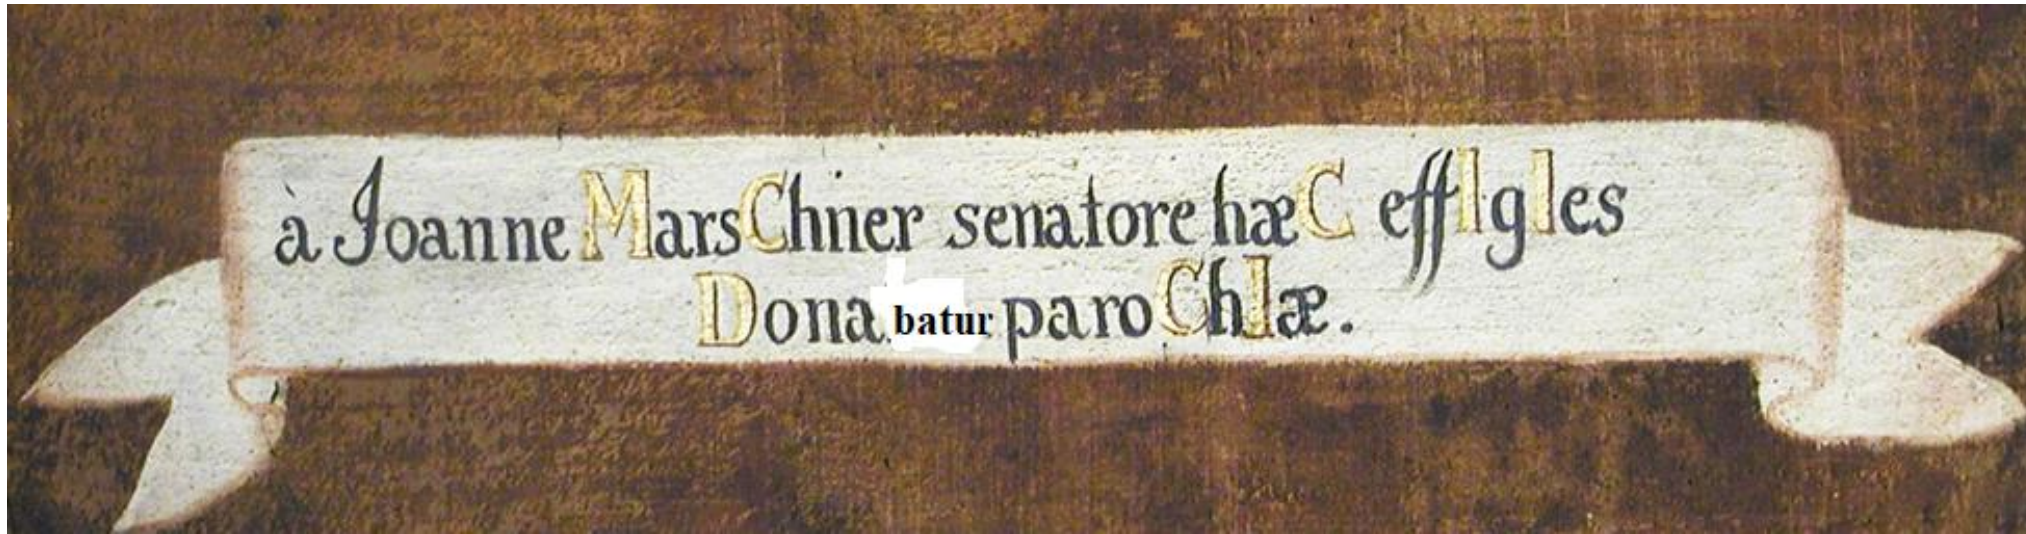 à Joanne MarsChner senatore hæC effIgIes
Donabatur paroChIæ.